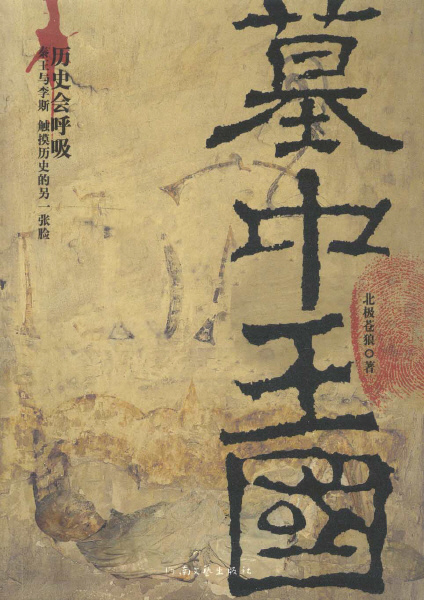 墓中王國
北极苍狼◎著
历史会呼吸
秦王与李斯 触摸历史的另一张脸
河南文艺出版社